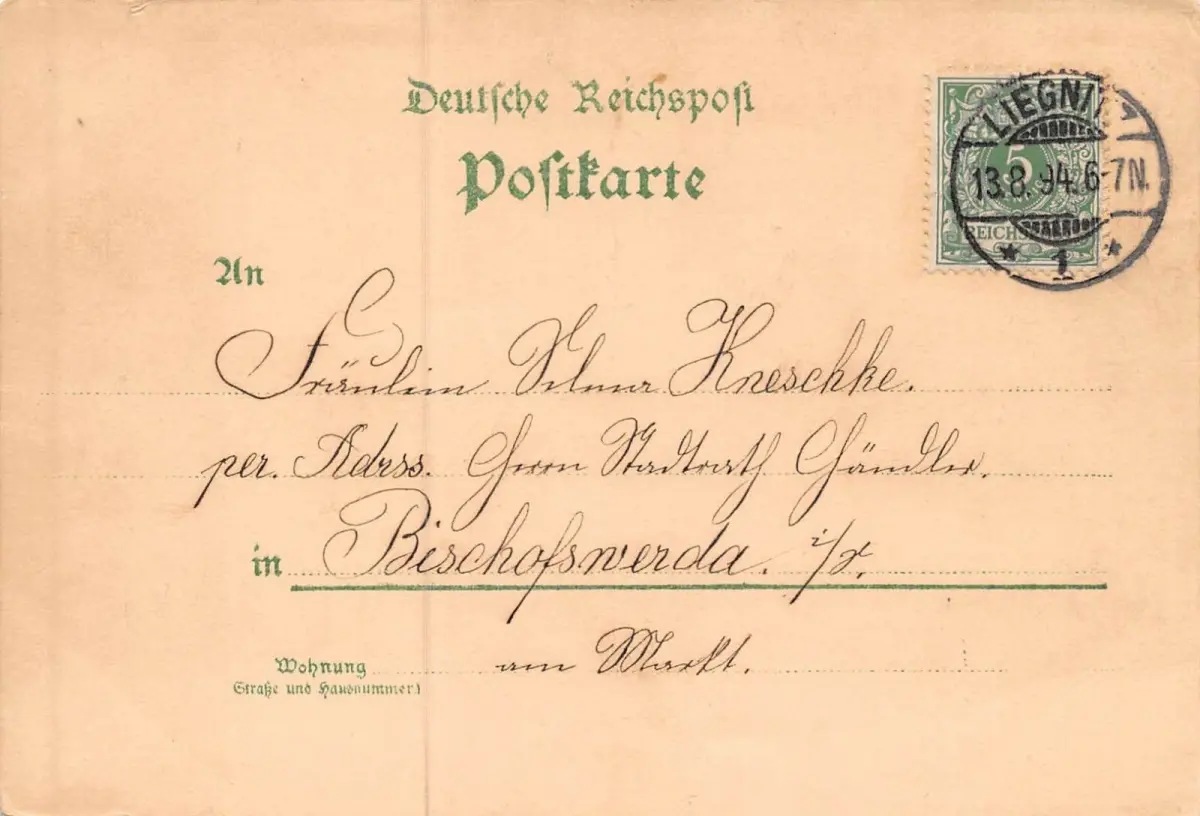 Deutsche Reichspost
Postkarte
LIEGNITZ
13.8.94.6-7N.
* 1 *
5
REICHS
An
Fräulein Selma Kneschke.
per. Adrss. Herrn Stadtrath Händler.
in Bischofswerda. i/S.
Wohnung am Markt.
(Straße und Hausnummer)